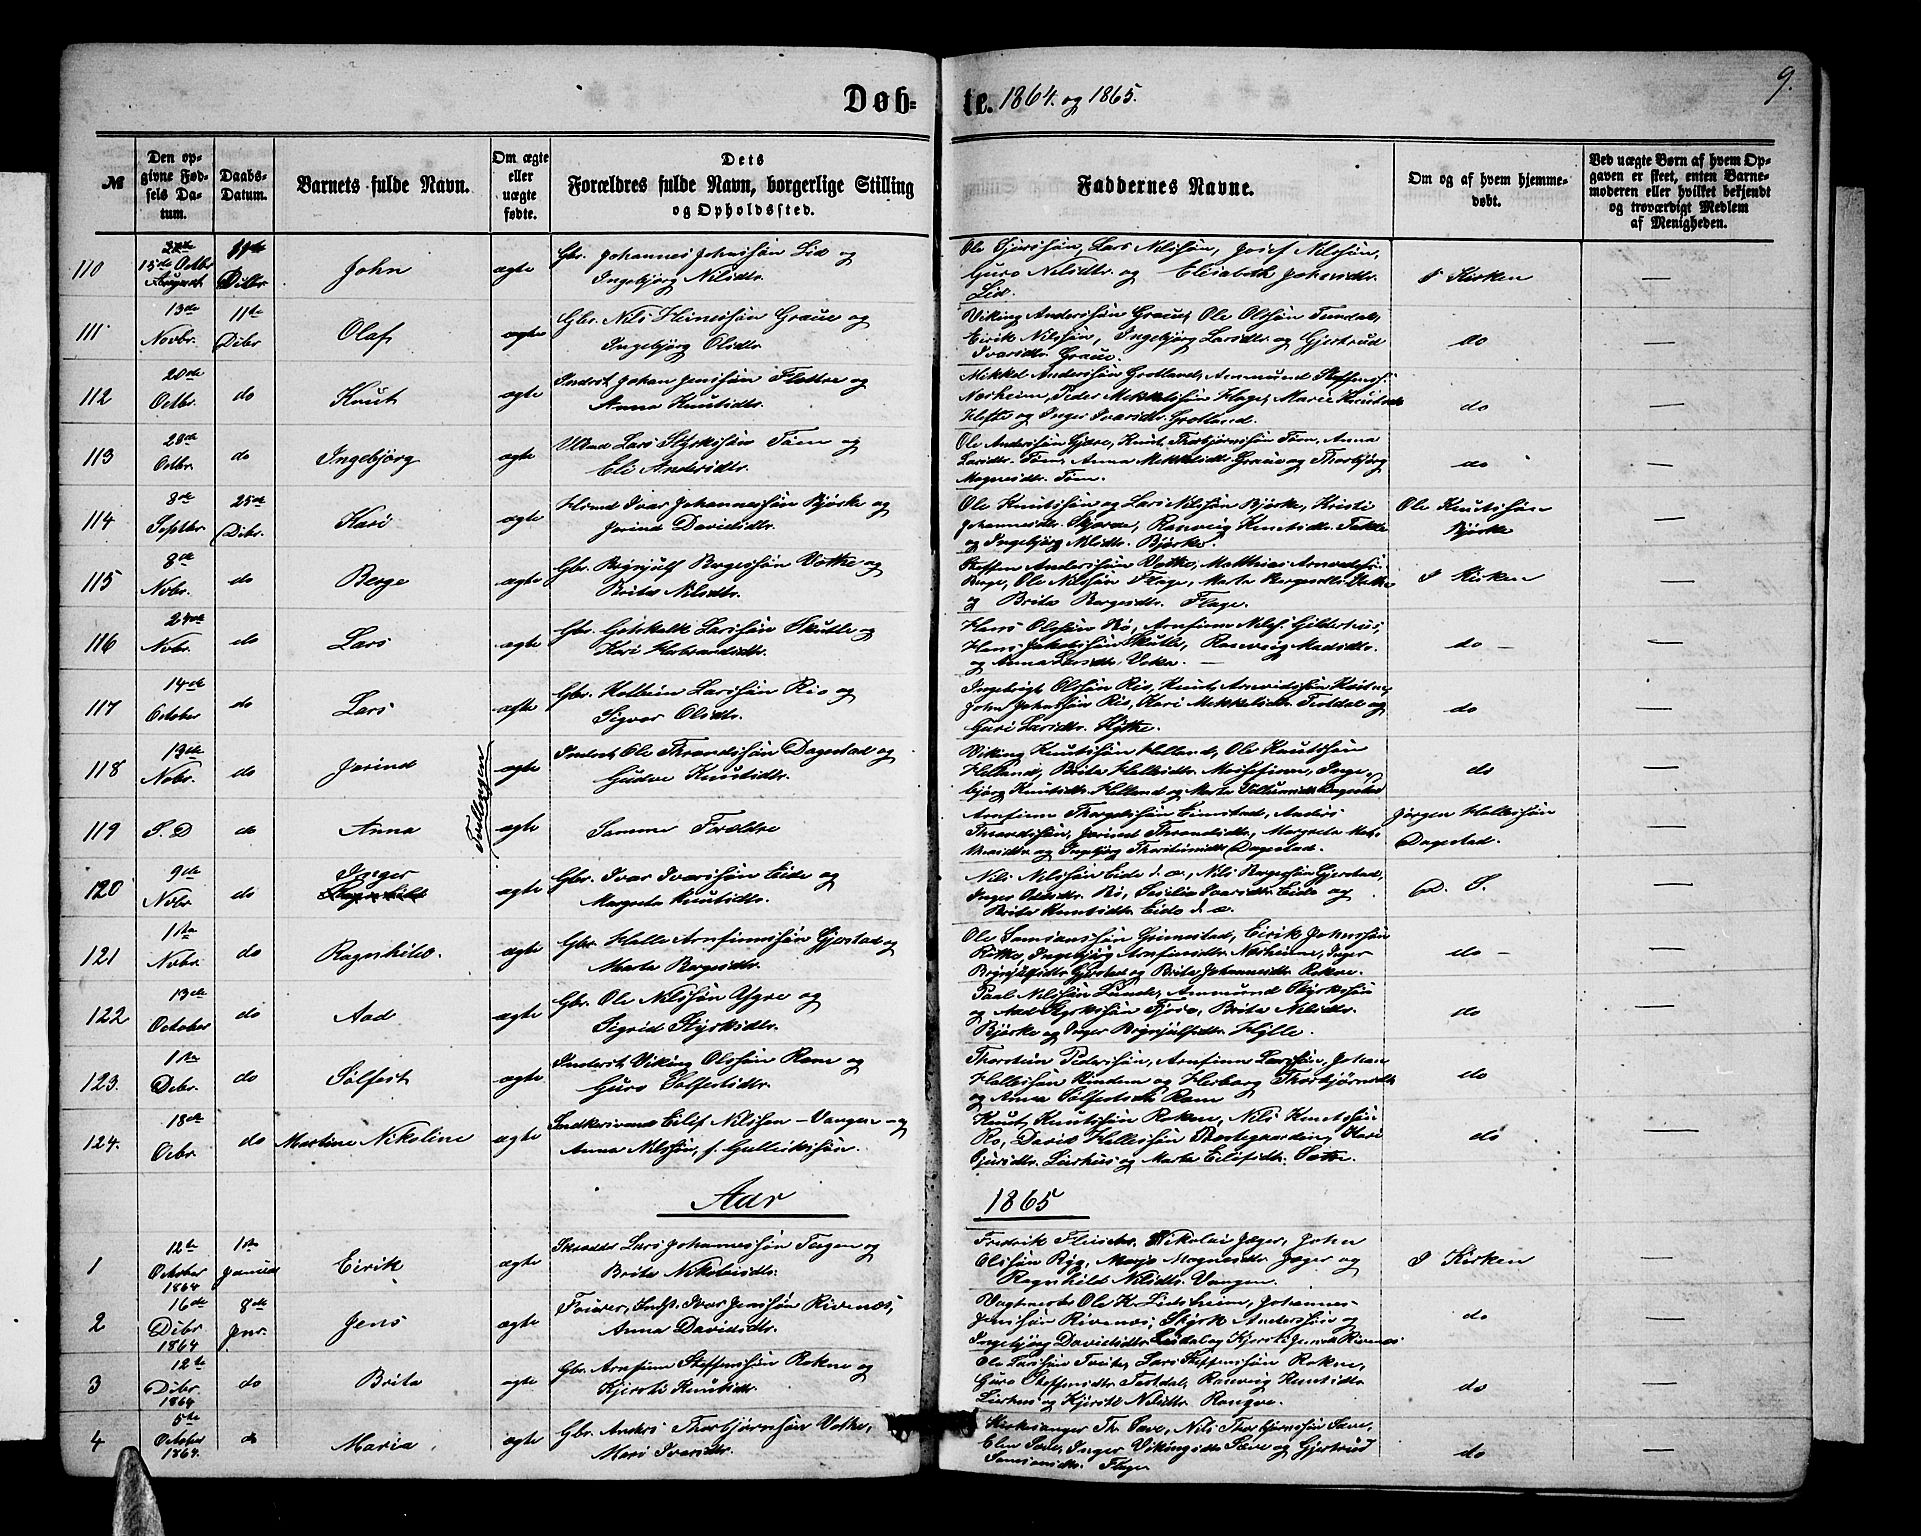 9.
Døb=
te. 1864. og 1865.
№
Den op=
givne Fød=
sels Da=
tum.
Daabs=
Datum.
Barnets fulde Navn.
Om ægte
eller
uægte
fødte.
Dets
Forældres fulde Navn, borgerlige Stilling
og Opholdssted.
Faddernes Navne.
Om og af hvem hjemme=
døbt.
Ved uægte Børn af hvem Op=
gaven er skeet, enten Barne=
moderen eller hvilket bekjendt
og troværdigt Medlem
af Menigheden.
110
15de Octbr
Dcbr
John
ægte
Gbr. Johannes Johnssøn Lid og
Ingebjørg Nilsdtr.
Lars Nilssøn, Josef Nilssøn,
Guro Nilsdtr. og Elisabeth Johnsdtr.
Lid.
I Kirken
111
13de
Novbr.
11te
Dcbr
Olaf
ægte
Gbr. Nils Heinessøn Graue og
Ingebjørg Olsdtr.
Viking Anderssøn Graue, Ole Olssøn
Eirik Nilssøn, Ingebjørg Larsdtr. og Gjertrud
Ivarsdtr. Graue.
do
112
20de
Octbr.
do
Knut
ægte
Inderst Johan Jenssøn Flettre og
Anna Knutsdtr.
Mikkel Anderssøn Grotland, Ammund
Norheim, Peder Mikkelssøn
og Inger Ivarsdtr. Grotland.
do
113
20de
Octbr.
do
Ingebjørg
ægte
Lars Styrkssøn Tøen og
Eli Andersdtr.
Ole Anderssøn Gjære, Knut Thorbjørnssøn Tøen, Anna
Larsdtr. Tøen, Anna Mikkelsdtr. Graue og Thorbjørg
Magnesdtr. Tøen.
do
114
8de
Septbr.
25de
Dcbr.
Kari
ægte
Hsmd Ivar Johannessøn Bjørke og
Jorina Davidsdtr.
Ole Knutssøn og Lars Nilssøn Bjørke, Kristi
Johannesdtr. Skjerve, Ranveig Knutsdtr.
og Ingebjørg Nilsdtr. Bjørke.
Ole Knutssøn
Bjørke
115
8de
Novbr.
do
Berge
ægte
Gbr. Brynjulf Bergessøn Væthe og
Brita Nilsdtr.
Steffen Anderssøn Væthe, Matthias
Berge, Ole Nilssøn Flage, Marta Bergesdtr.
og Brita Bergesdtr. Flage.
I Kirken
116
24de
Novbr.
do
Lars
ægte
Gbr. Gotskalk Larssøn Skutle og
Kari Herbrandsdtr.
Hans Olssøn Bø, Arnfinn Nilss. Gilderhus,
Hans Jakobssøn Skutle, Ranveig Madsdtr.
og Anna Larsdtr.
do
117
14de
October
do
Lars
ægte
Gbr. Kolbein Larssøn Rio og
Sigvor Olsdtr.
Ingebrigt Olssøn Rio, Knut Arnvidssøn
John Johnssøn Rio, Kari Mikkelsdtr. og
Guri Larsdtr.
do
118
13de
Novbr.
do
Jorind
Tvillinger
ægte
Inderst Ole Throndssøn Dagestad og
Gudve Knutsdtr.
Viking Knutssøn Helland, Ole Knutssøn
Helland, Brita Hallesdtr. Inge=
bjørg Knutsdtr. Helland og Marta Dagestad
do
119
S. D
do
Anna
ægte
Samme Forældre
Arnfinn Thorgilssøn Anders
Throndssøn, Jorind Throndsdtr., Margreta
og Ingebjørg Thorsteinsdtr. Dagestad.
Jørgen Hallessøn
Dagestad.
120
9de
Novbr.
do
Inger
ægte
Gbr. Ivar Ivarssøn Eide og
Margreta Knutsdtr.
Nils Nilssøn Eide d. æ., Nils Bergessøn Gjerstad,
Inger Olsdtr. Bø, Sesilia Ivarsdtr. Eide og
Brita Knutsdtr. Eide d. æ.
D. S.
121
11te
Novbr.
do
Ragnhild.
ægte
Gbr. Halle Arnfinnssøn Gjerstad og
Marta Bergesdtr.
Ole Samsonssøn Grimestad, Eirik Johnssøn
Ingebjørg Arnfinnsdtr. Norheim, Inger
Brynjulfsdtr. Gjerstad og Brita Johannesdtr. Rokne.
do
122
13de
October
do
Aad
ægte
Gbr. Ole Nilssøn Ygre og
Sigrid Styrksdtr.
Paul Nilssøn Lunde, Ammund Styrkssøn
og Aad Styrkssøn Fjose, Brita Nilsdtr.
Bjørke og Inger Brynjulfsdtr. Hylle.
do
123.
1ste
Dcbr.
do
Sølfest
ægte
Inderst Viking Olssøn Rene og
Guro Sølfestsdtr.
Thorstein Pederssøn, Arnfinn Larssøn, Johan
Hallessøn Rinden og Herborg Thorbjørnsdtr.
og Anna Sølfestsdtr. Rene
do
124.
18de
Ocbr.
do
Martine Nikoline
ægte
Landkræmmer Eilef Nilssen – Vangen – og
Anna Nilssøn, f. Gulleikssøn.
Knut Knutssøn Rokne, Nils Knutssøn
Ro, David Hallessøn Prestegaarden, Kari
Gjursdtr. Lirhus og Marta Eilefsdtr. Sætre.
do
Aar
1865
1
12te
October
1864
1ste
Januar
Eirik
ægte
Skrædder Lars Johannessøn Tesgen og
Brita Nikolaisdtr.
Fredrik Fleischer, Nikolai Jæger, John
Olssøn Ryg, Marjo Magnesdtr. Jæger og
Ragnhild Nilsdtr. Vangen.
I Kirken
2
16de
Dcbr
1864
8de
Jnr.
Jens
ægte
Ivar Jenssøn Rivenes,
Anna Davidsdtr.
Vagtmester Ole K. Lidsheim, Johannes
Jenssøn Rivenes, Styrk Anderssøn og
Ingebjørg Davidsdtr. og Kjersti Rivenes
do
3
12te
Dcbr.
1864
do
Brita
ægte
Gbr. Arnfinn Steffenssøn Rokne og
Kjersti Knutsdtr.
Ole Larssøn Tvite, Lars Steffenssøn Rokne,
Guro Steffensdtr. Ranveig Knutsdtr.
Lirhus og Kjersti Nilsdtr. Rongve.
do
4
5te
October
1864.
do
Maria
ægte
Gbr. Anders Thorbjørnssøn Væthe,
Mari Ivarsdtr.
Kirkesanger Th. Sæve, Nils Thorbjørnssøn Sæve,
Elen Sæve, Inger Vikingsdtr. Sæve og Gjertrud
Samsonsdtr. Flage
do